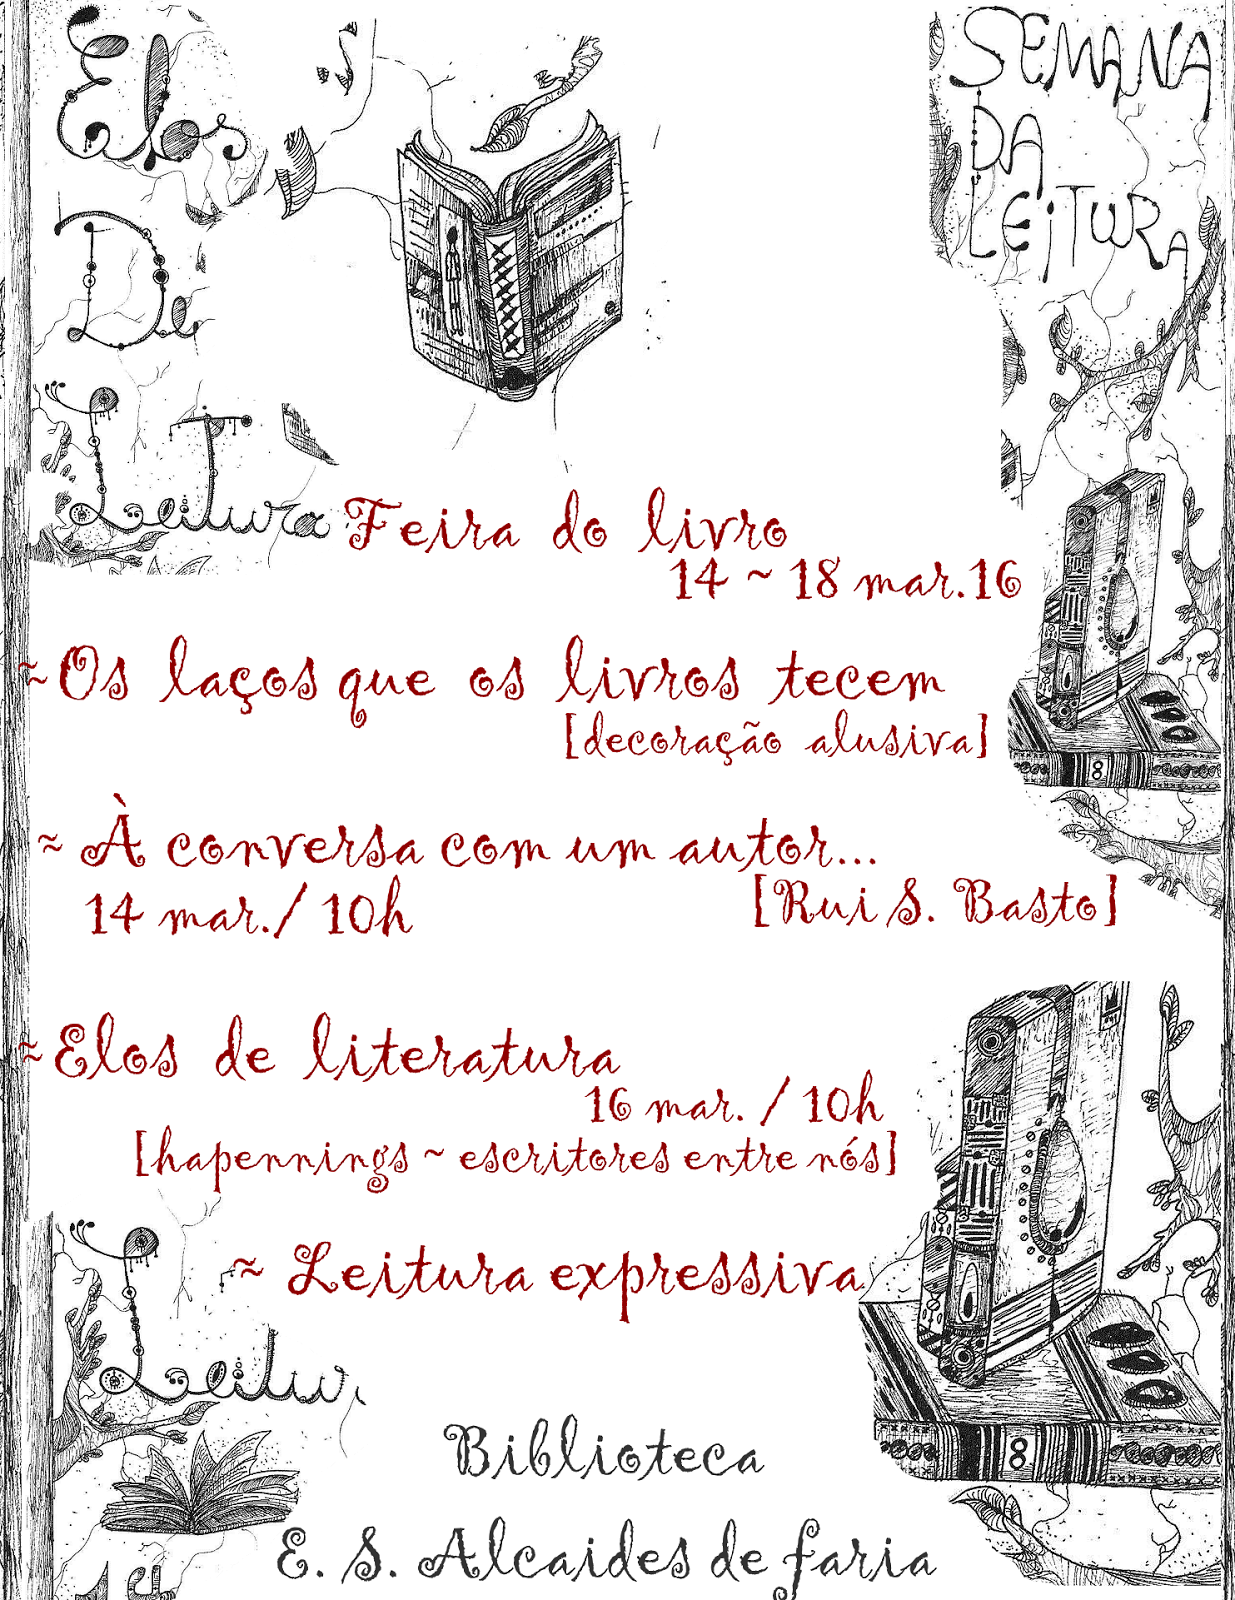 Elos
De
LiT
Leitura
SEMANA
DA
LEiTURA
Feira do livro
14 ~ 18 mar.16
~ Os laços que os livros tecem
[decoração alusiva]
~ À conversa com um autor...
14 mar./ 10h
[Rui S. Basto]
~ Elos de literatura
16 mar. / 10h
[hapennings ~ escritores entre nós]
~ Leitura expressiva
8
8
Leitur
Biblioteca
E. S. Alcaides de faria